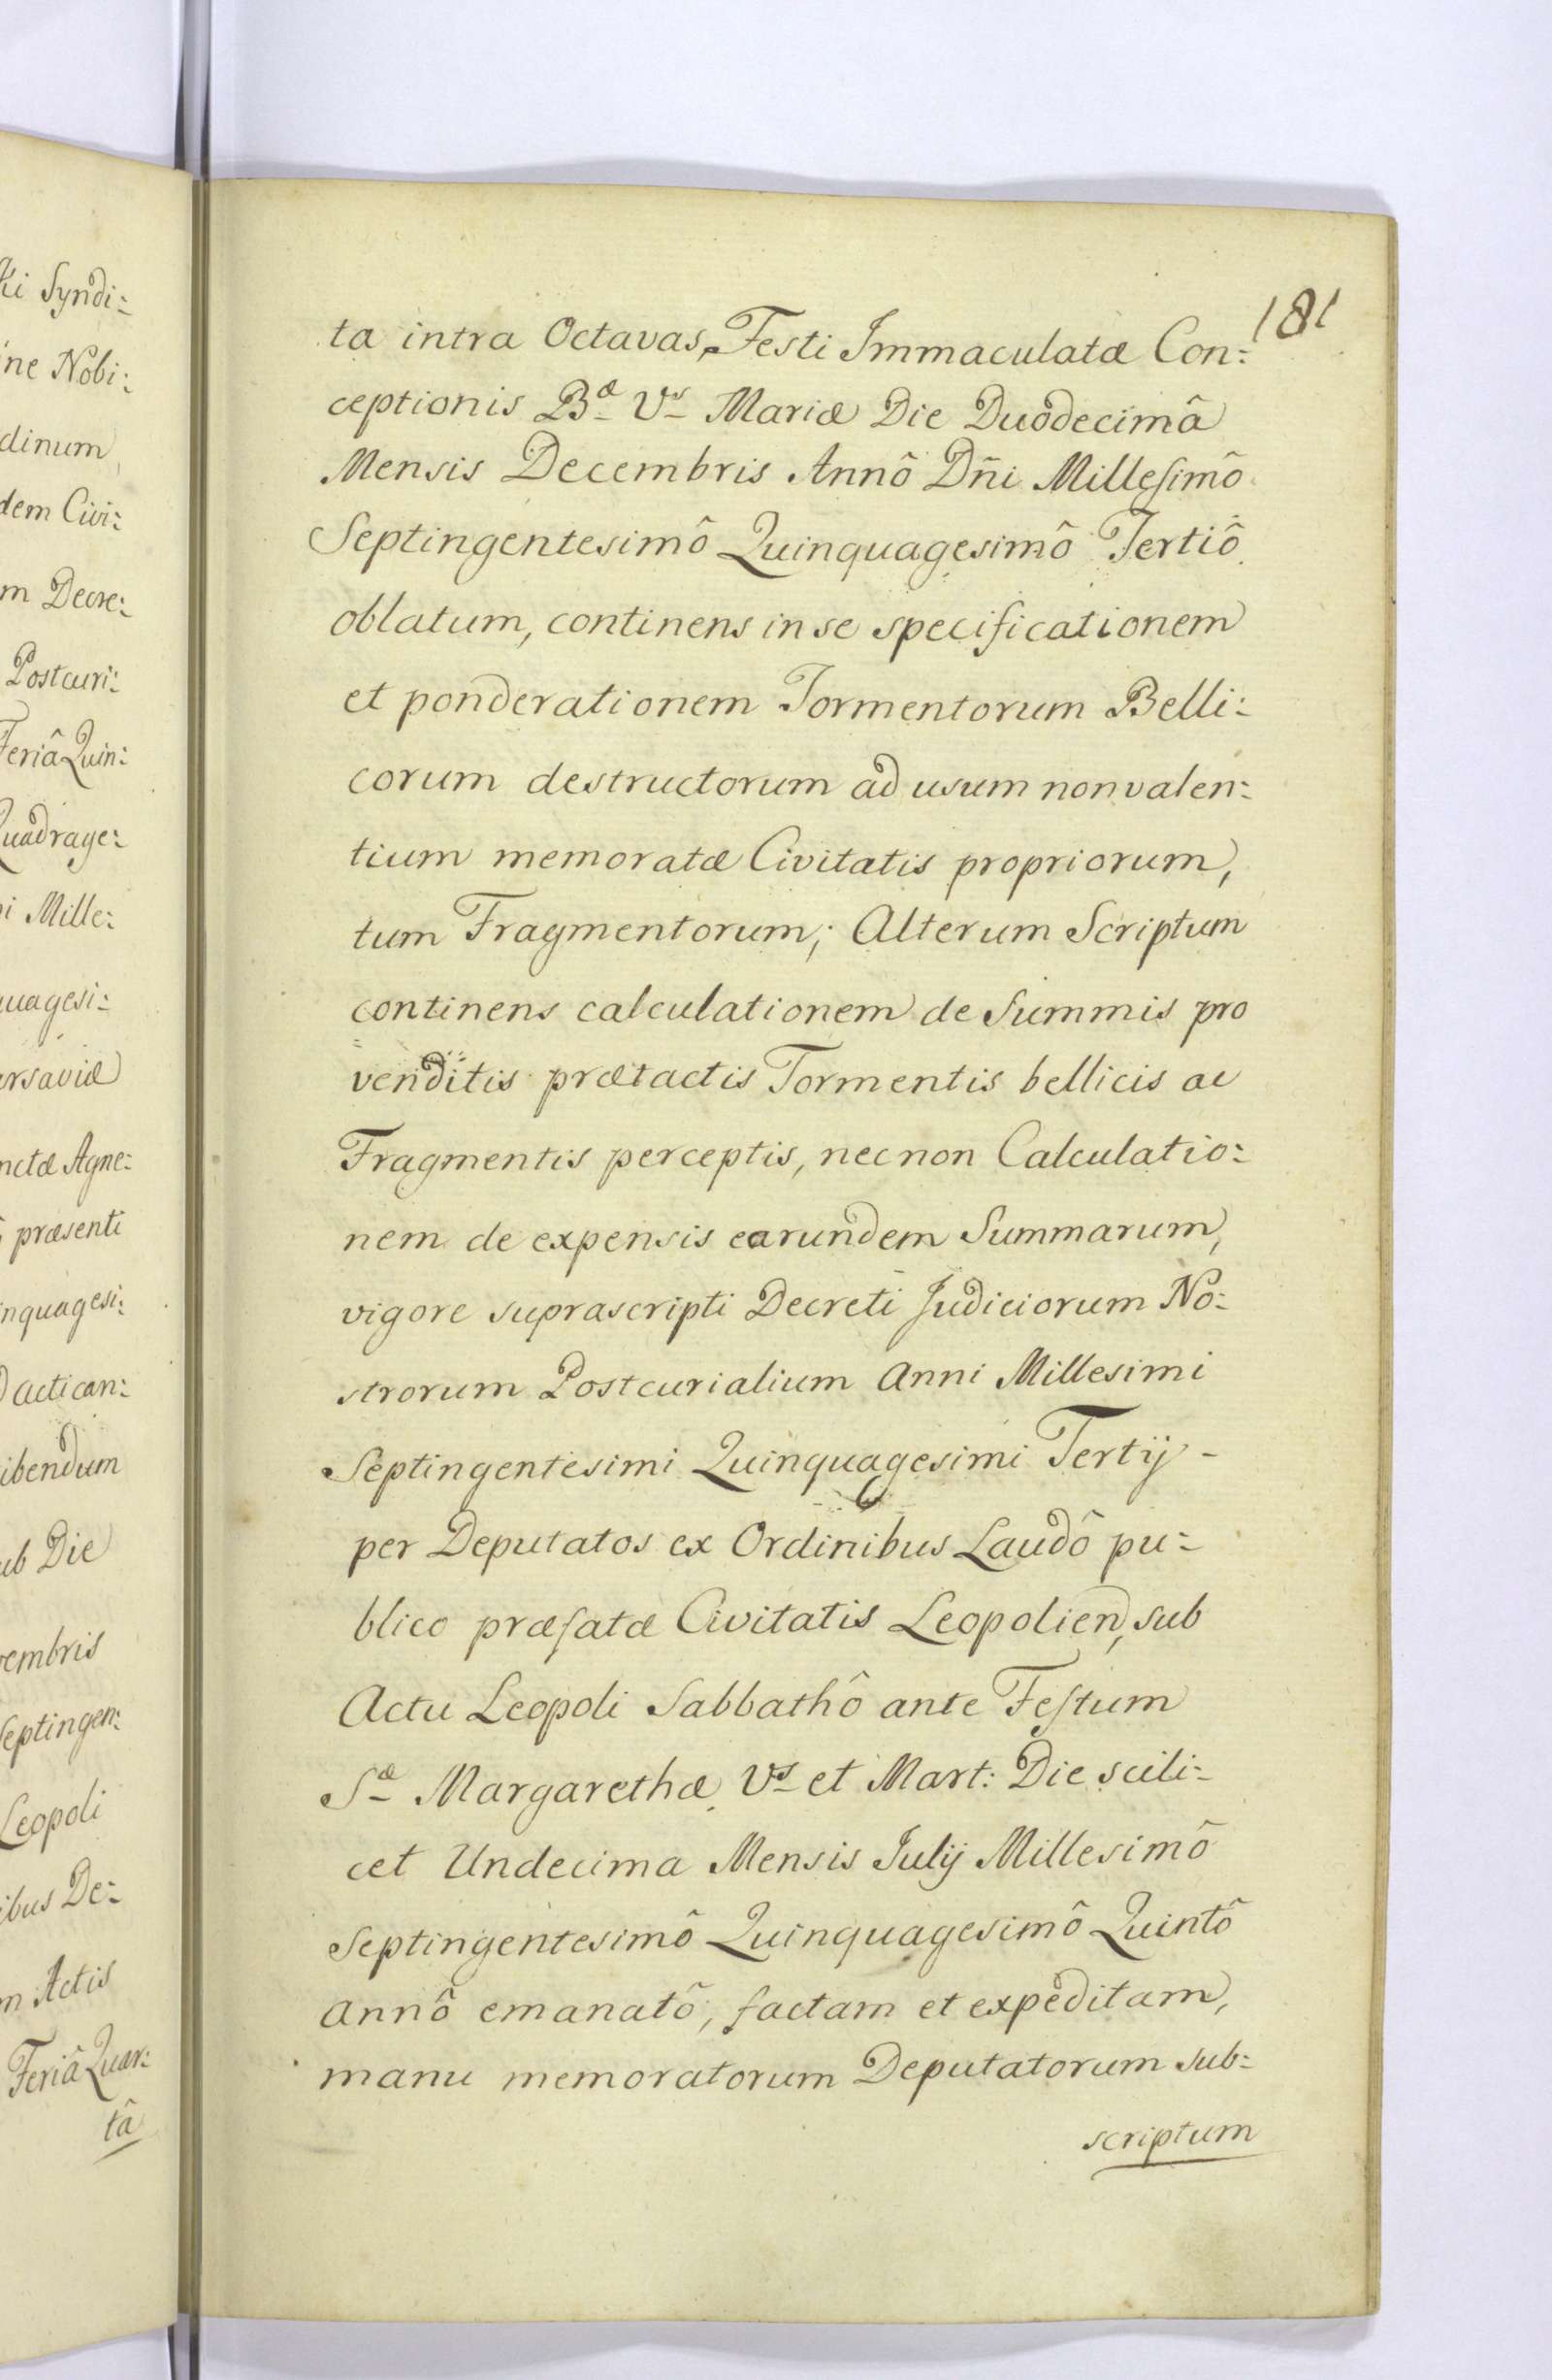 181
ta intra Octavas Festi Immaculatæ Con:
ceptionis Bæ Vs Mariæ Die Duodecimâ
Mensis Decembris Annô Dñi Millesimô
Septingentesimô Quinquagesimô Tertiô
oblatum, continens in se specificationem
et ponderationem Tormentorum Belli:
corum destructorum ad usum non valen:
tium memoratæ Civitatis propriorum,
tum Fragmentorum; Alterum Scriptum
continens calculationem de Summis pro
venditis prætactis Tormentis bellicis ac
Fragmentis perceptis, nec non Calculatio:
nem de expensis earundem Summarum,
vigore suprascripti Decreti Judiciorum No:
strorum Postcurialium Anni Millesimi
Septingentesimi Quinquagesimi Tertij -
per Deputatos ex Ordinibus Laudô pu:
blico præfatæ Civitatis Leopolien, sub
Actu Leopoli Sabbathô ante Festum
Sæ Margarethæ Vs et Mart: Die scili:
cet Undecima Mensis Julij Millesimô
Septingentesimô Quinquagesimô Quintô
Annô emanatô, factam et expeditam,
manu memoratorum Deputatorum sub:
scriptum
ki Syndi:
ne Nobi:
dinum
dem Civi:
m Decre:
Postcuri:
Feriâ Quin:
Quadrage:
i Mille:
uagesi:
arsaviæ
nctæ Agne:
præsenti
inquagesi:
actican:
ibendum
ub Die
vembris
Septingen:
Leopoli
ibus De:
m Actis
Feriâ Quar:
tâ